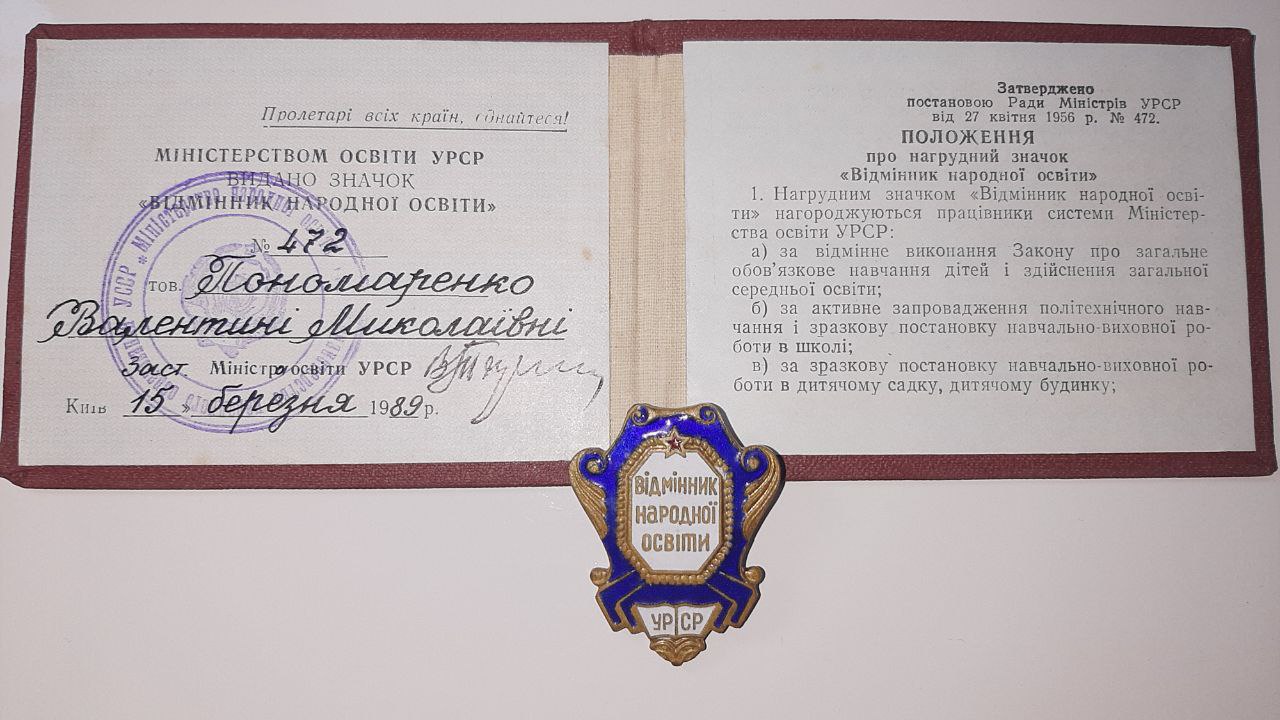 Пролетарі всіх країн, єднайтеся!
МІНІСТЕРСТВОМ ОСВІТИ УРСР
ВИДАНО ЗНАЧОК
«ВІДМІННИК НАРОДНОЇ ОСВІТИ»
№ 472
тов. Пономаренко
Валентині Миколаївні
Заст. Міністр а освіти УРСР
Київ 15 » березня 1989 р.
МІНІСТЕРСТВО НАРОДНОЇ
Затверджено
постановою Ради Міністрів УРСР
від 27 квітня 1956 р. № 472.
ПОЛОЖЕННЯ
про нагрудний значок
«Відмінник народної освіти»
1. Нагрудним значком «Відмінник народної осві-
ти» нагороджуються працівники системи Міністер-
ства освіти УРСР:
а) за відмінне виконання Закону про загальне
обов'язкове навчання дітей і здійснення загальної
середньої освіти;
б) за активне запровадження політехнічного нав-
чання і зразкову постановку навчально-виховної ро-
боти в школі;
в) за зразкову постановку навчально-виховної ро-
боти в дитячому садку, дитячому будинку;
Відмінник
народної
освіти
УРСР